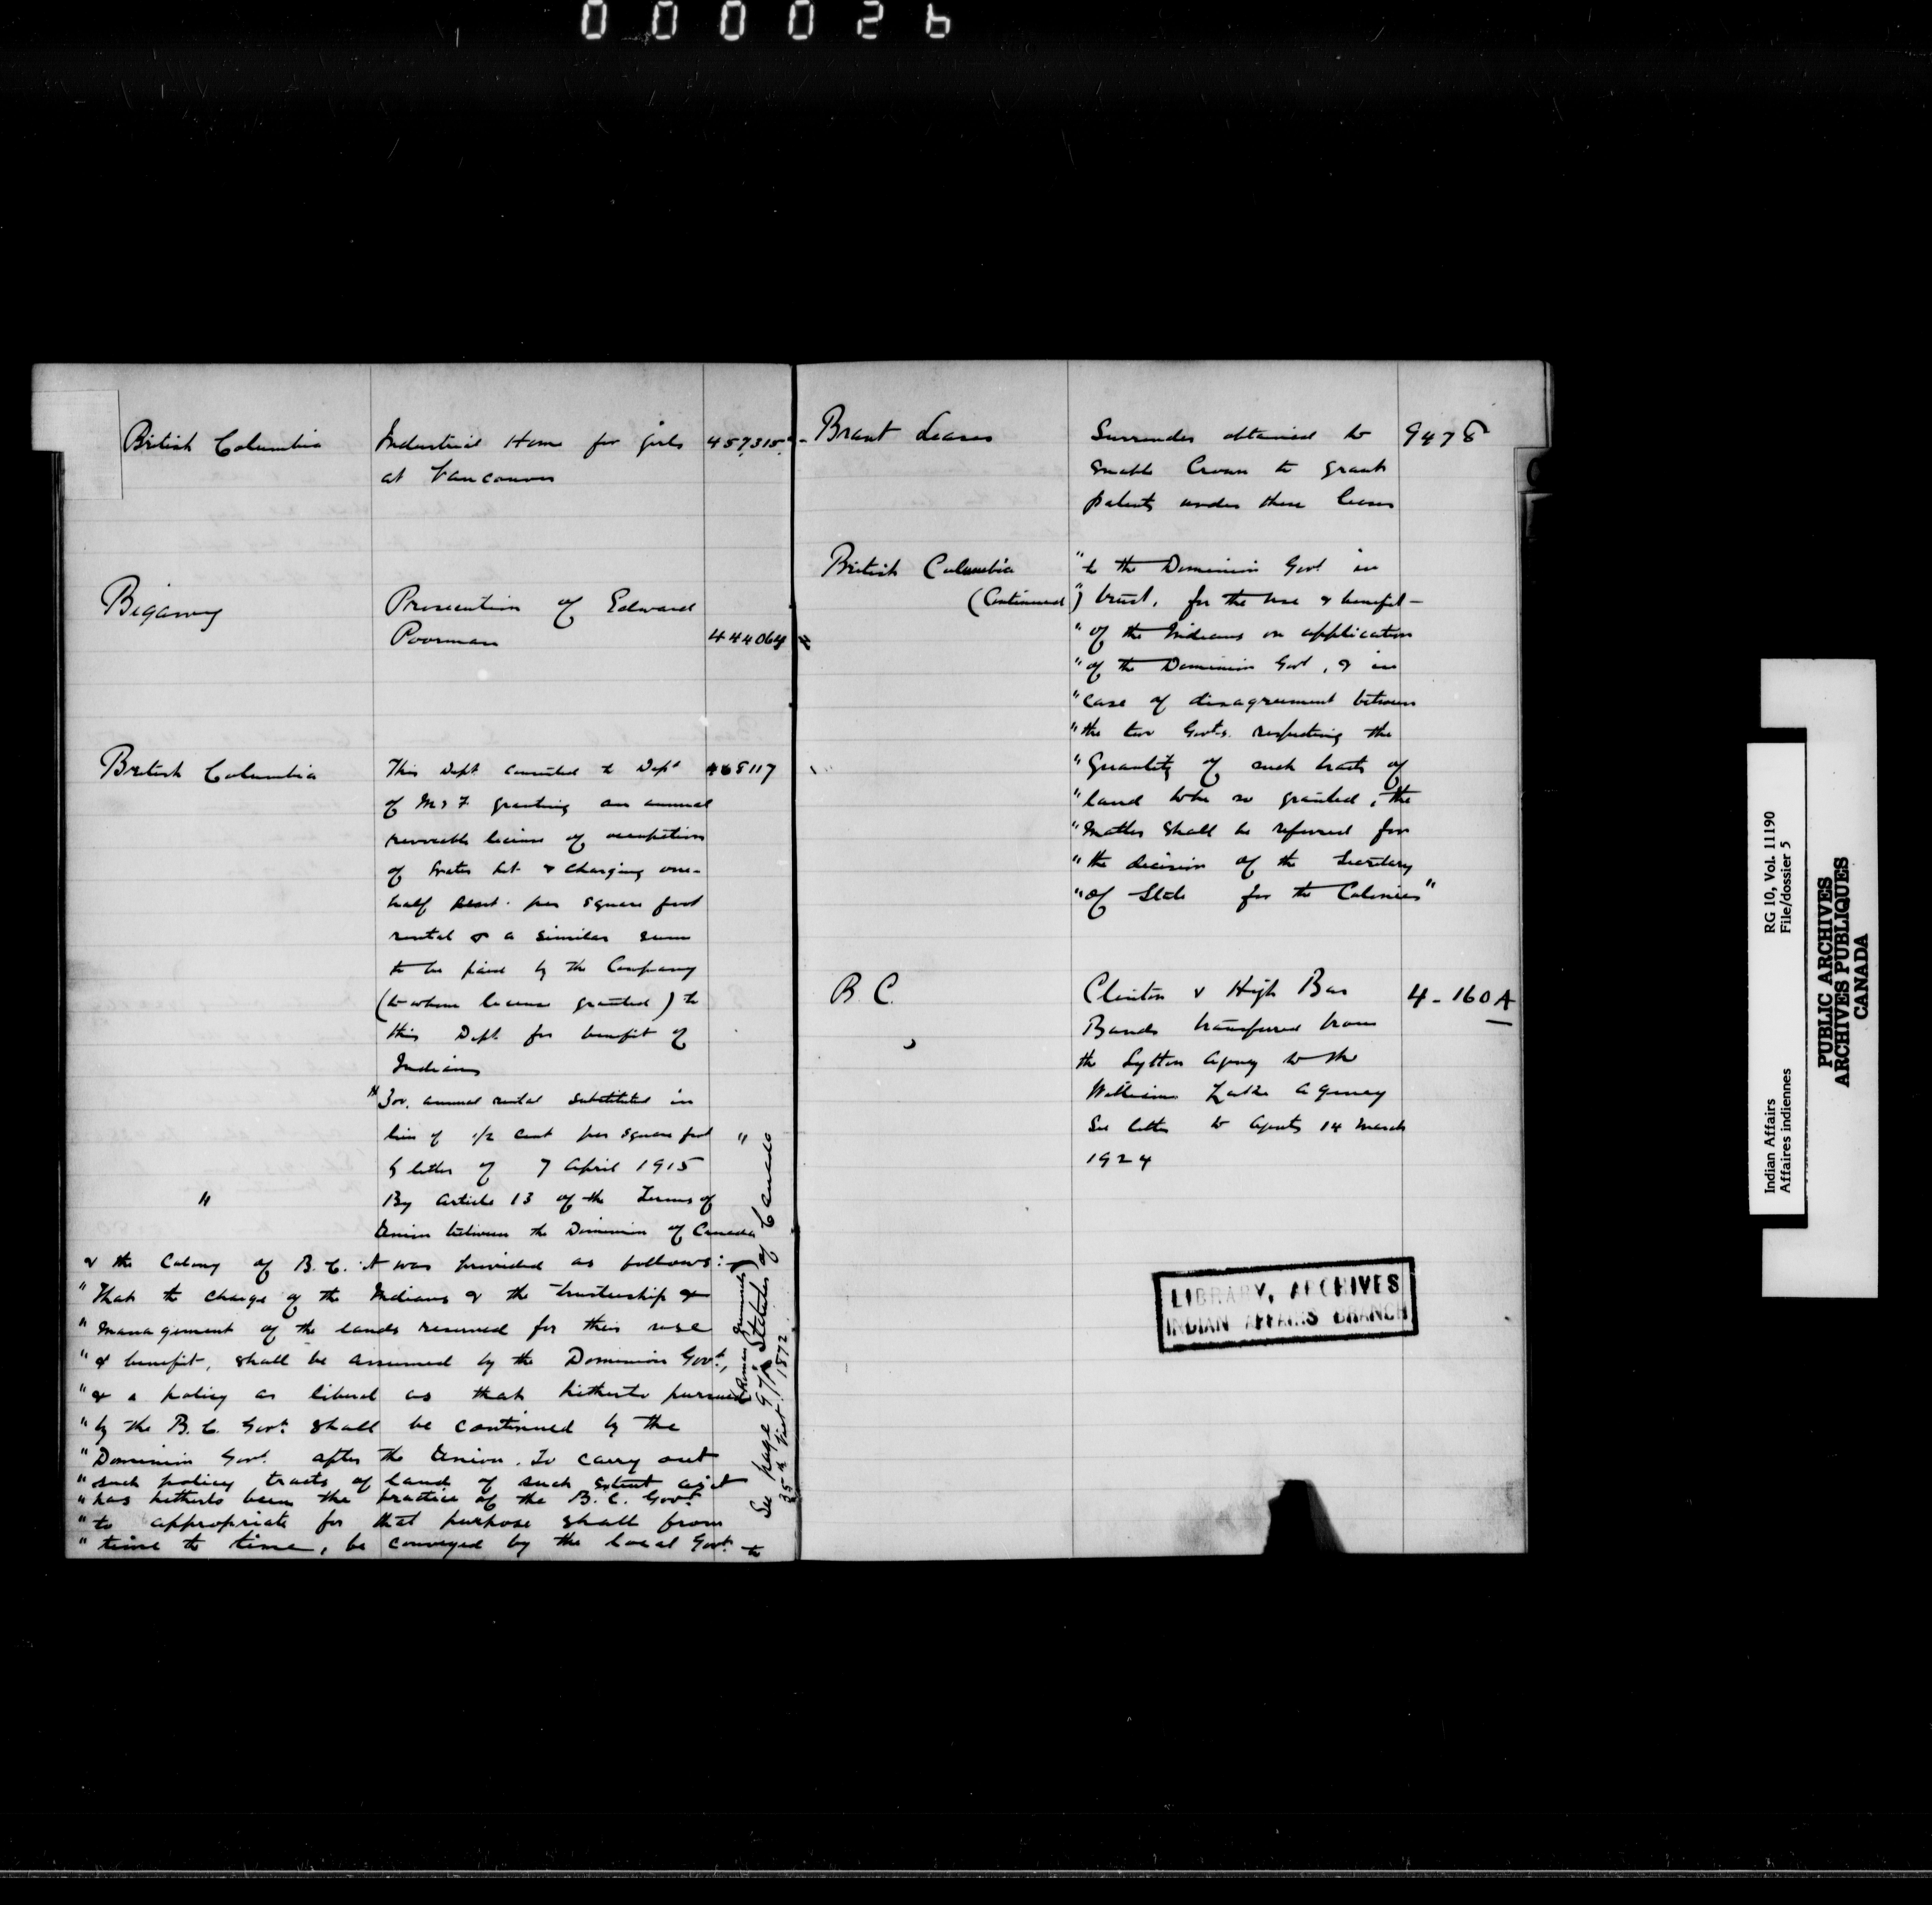 000026
British Columbia Industrial Home for girls 457,315
at Vancouver
Bigamy Prosecution of Edward
Poorman 444064
British Columbia This Dept. consented to Dept 468117
of M & F granting an annual
revocable license of occupation
of water lot & charging one-
half cent per square foot
rental & a similar sum
to be paid by the Company
(to whom license granted) to
this Dept for benefit of
Indians
annual rental substituted in
lieu of 1/2 cent per square foot "
letter of 7 April 1915
" By Article 13 of the Terms of
Union between the Dominion of Canada
& the Colony of B.C. it was provided as follows:-
"That the charge of the Indians & the trusteeship &
"management of the lands reserved for their use
"& benefit, shall be assumed by the Dominion Govt,
"& a policy as liberal as that hitherto pursued
"by the B.C. Govt shall be continued by the
"Dominion Govt. after the Union. To carry out
"such policy tracts of land of such extent as it
"has hitherto been the practice of the B.C. Govt
"to appropriate for that purpose shall from
"time to time, be conveyed by the local Govt. to
(Roman Numerals)
See page 97 in Statutes of Canada
35th Vict. 1872
Brant Leases Surrender obtained to 9478
enable Crown to grant
patents under these leases
British Columbia "to the Dominion Govt in
(Continued) "trust, for the use & benefit-
"of the Indians on application
"of the Dominion Govt, & in
"case of disagreement between
"the two Govts. respecting the
"Quantity of such tracts of
"land to be so granted, the
"matter shall be referred for
"the decision of the Secretary
"of State for the Colonies"
B.C. Clinton & High Bar 4-160A
Bands transferred from
the Lytton Agency to the
Williams Lake Agency
See letter to Agents 14 March
1924
LIBRARY, ARCHIVES
INDIAN AFFAIRS BRANCH
Indian Affairs RG 10, Vol. 11190
Affaires indiennes File/dossier 5
PUBLIC ARCHIVES
ARCHIVES PUBLIQUES
CANADA